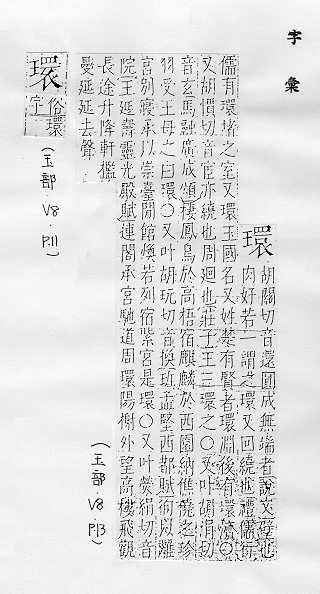 字彙
環
胡關切音還圜成無端者說文璧也
肉好若一謂之環又回繞也禮儒行
儒有環堵之室又環玉國名又姓楚有賢者環淵後有環濟○
又胡慣切音宦亦繞也周迴也莊子王三環之○又叶胡涓切
音玄馬融廣成頌棲鳳鳥於高梧宿麒麟於西園納僬僥之珍
羽受王母之白環○又叶胡玩切音換班孟堅西都賦徇以離
宮別寢承以崇臺閒館煥若列宿紫宮是環○又叶熒絹切音
院王延壽靈光殿賦連閣承宮馳道周環陽榭外望高樓飛觀
長途升降軒檻
曼延延去聲
(玉部.V8 P.13)
環
俗環
字
(玉部 V8 P.11)